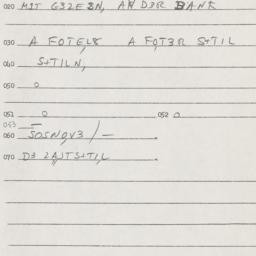 020 MIT G32E2N, AN D3R BANK
030 A FOTEL% A FOT3R S+TIL
040 S+TILN,
050 0
051 0 052 0
053 —
060 SOSNOV3 / —
070 D3 2AJTS+TIL